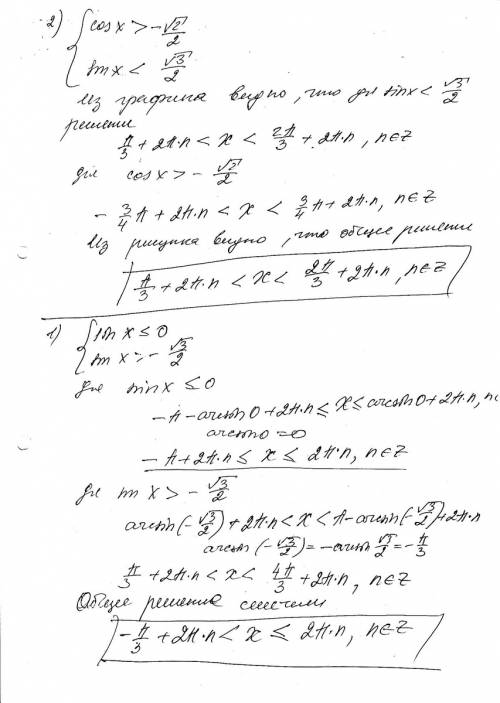 2) { cos x > -√2/2
{ sin x < √3/2
Из графика видно, что для sin x < √3/2
решение
π/3 + 2π·n < x < 2π/3 + 2π·n, n∈Z
для cos x > -√2/2
- 3/4 π + 2π·n < x < 3/4 π + 2π·n, n∈Z
Из рисунка видно, что общее решение
π/3 + 2π·n < x < 2π/3 + 2π·n, n∈Z
1) { sin x ≤ 0
{ sin x > - √3/2
для sin x ≤ 0
-π - arcsin 0 + 2π·n ≤ x ≤ arcsin 0 + 2π·n, n∈
arcsin 0 = 0
-π + 2π·n ≤ x ≤ 2π·n, n∈Z
для sin x > - √3/2
arcsin(-√3/2) + 2π·n < x < π - arcsin(-√3/2) + 2π·n
arcsin(-√3/2) = -arcsin √3/2 = -π/3
π/3 + 2π·n < x < 4π/3 + 2π·n, n∈Z
Общее решение системы
-π/3 + 2π·n < x ≤ 2π·n, n∈Z